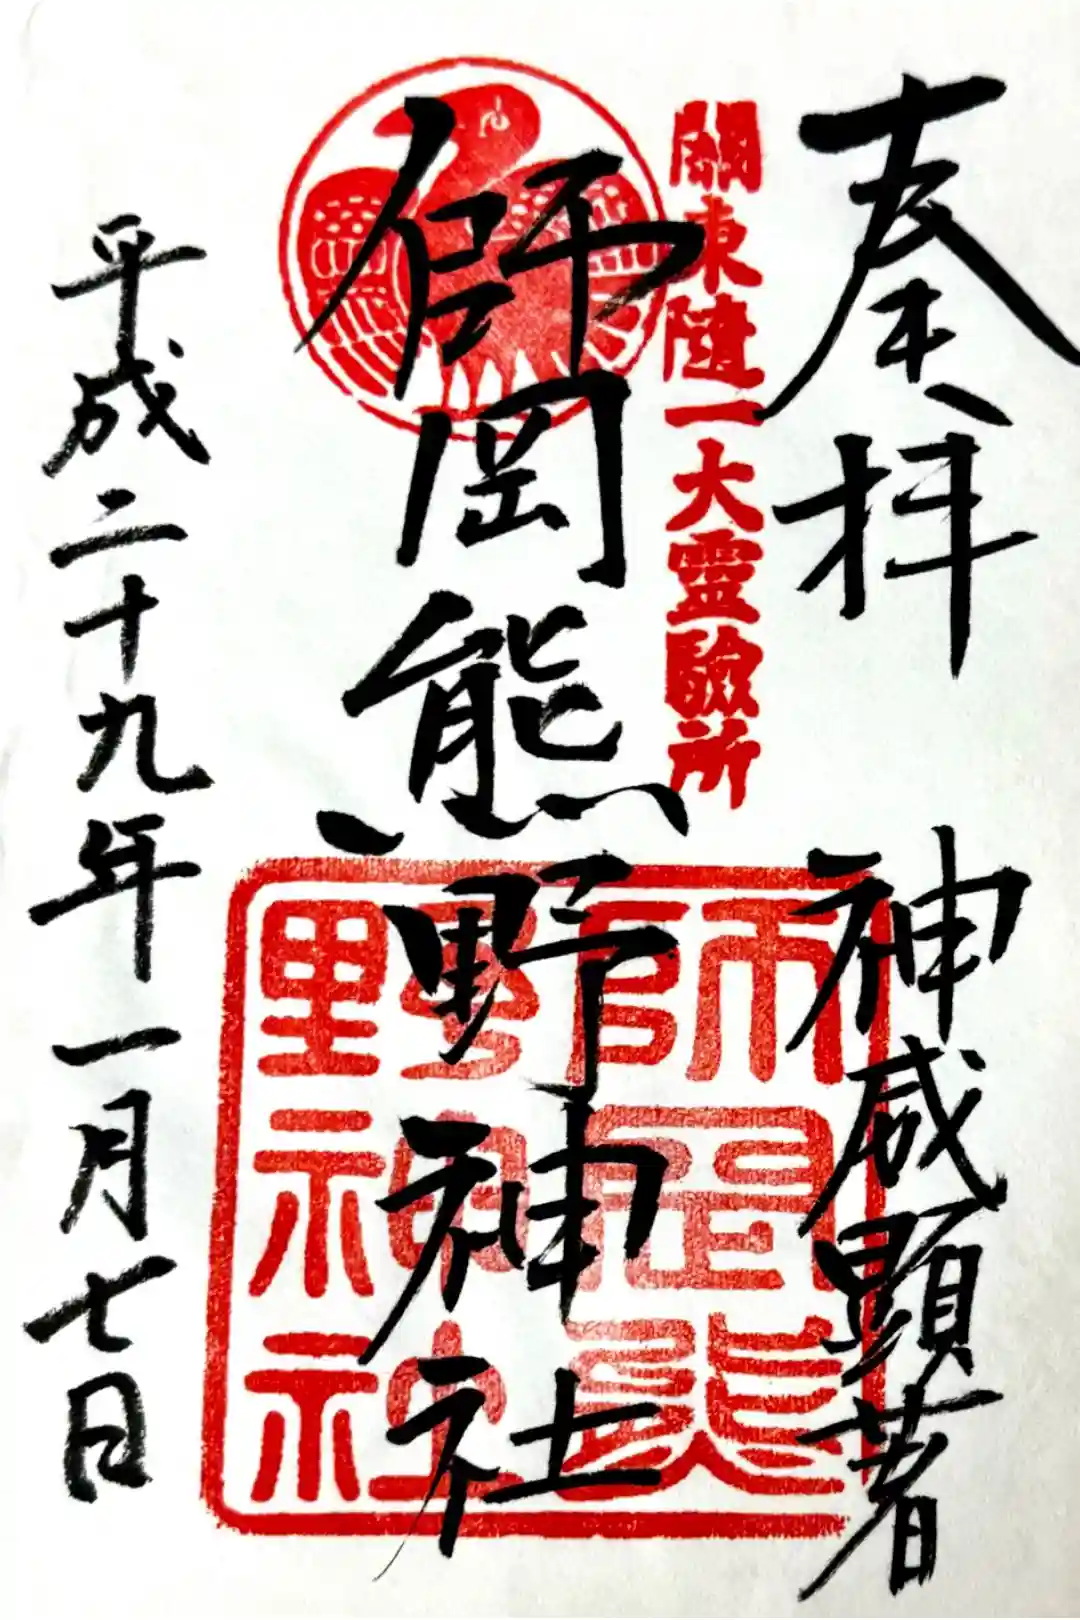 奉拝
神威顕著
關東随一大霊験所
師岡熊野神社
師岡熊
野神社
平成二十九年一月七日